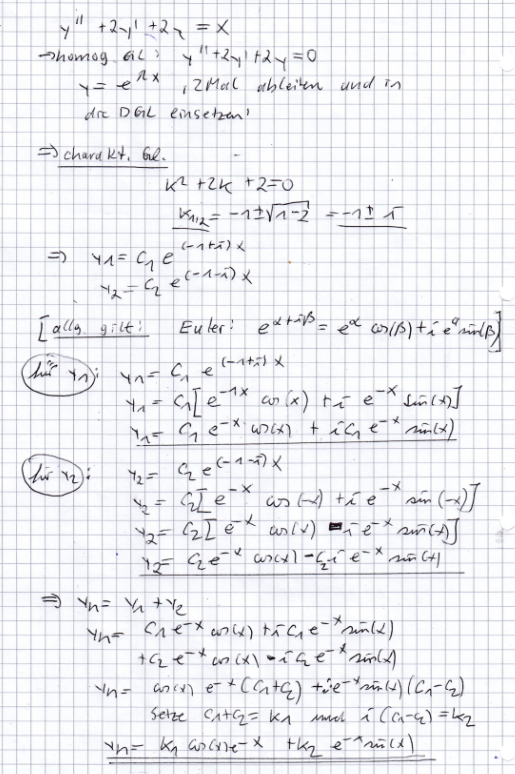 y'' + 2y' + 2y = x
→ homog Gl: y'' + 2y' + 2y = 0
y = e^λx , 2 Mal ableiten und in
die DGL einsetzen!
⇒ charakt. Gl.
k² + 2k + 2 = 0
k1,2 = -1 ± √1-2 = -1 ± i
⇒ y1 = C1 e^(-1+i)x
y2 = C2 e^(-1-i)x
[allg. gilt: Euler: e^α+iβ = e^α cos(β) + i e^α sin(β)]
für y1: y1 = C1 e^(-1+i)x
y1 = C1[e^-1x cos(x) + i e^-x sin(x)]
y1 = C1 e^-x cos(x) + i C1 e^-x sin(x)
für y2: y2 = C2 e^(-1-i)x
y2 = C2[e^-x cos(-x) + i e^-x sin(-x)]
y2 = C2[e^-x cos(x) - i e^-x sin(x)]
y2 = C2 e^-x cos(x) - C2 i e^-x sin(x)
⇒ yh = y1 + y2
yh = C1 e^-x cos(x) + i C1 e^-x sin(x)
+ C2 e^-x cos(x) - i C2 e^-x sin(x)
yh = cos(x) e^-x (C1+C2) + i e^-x sin(x) (C1-C2)
Setze C1+C2 = k1 und i(C1-C2) = k2
yh = k1 cos(x) e^-x + k2 e^-x sin(x)